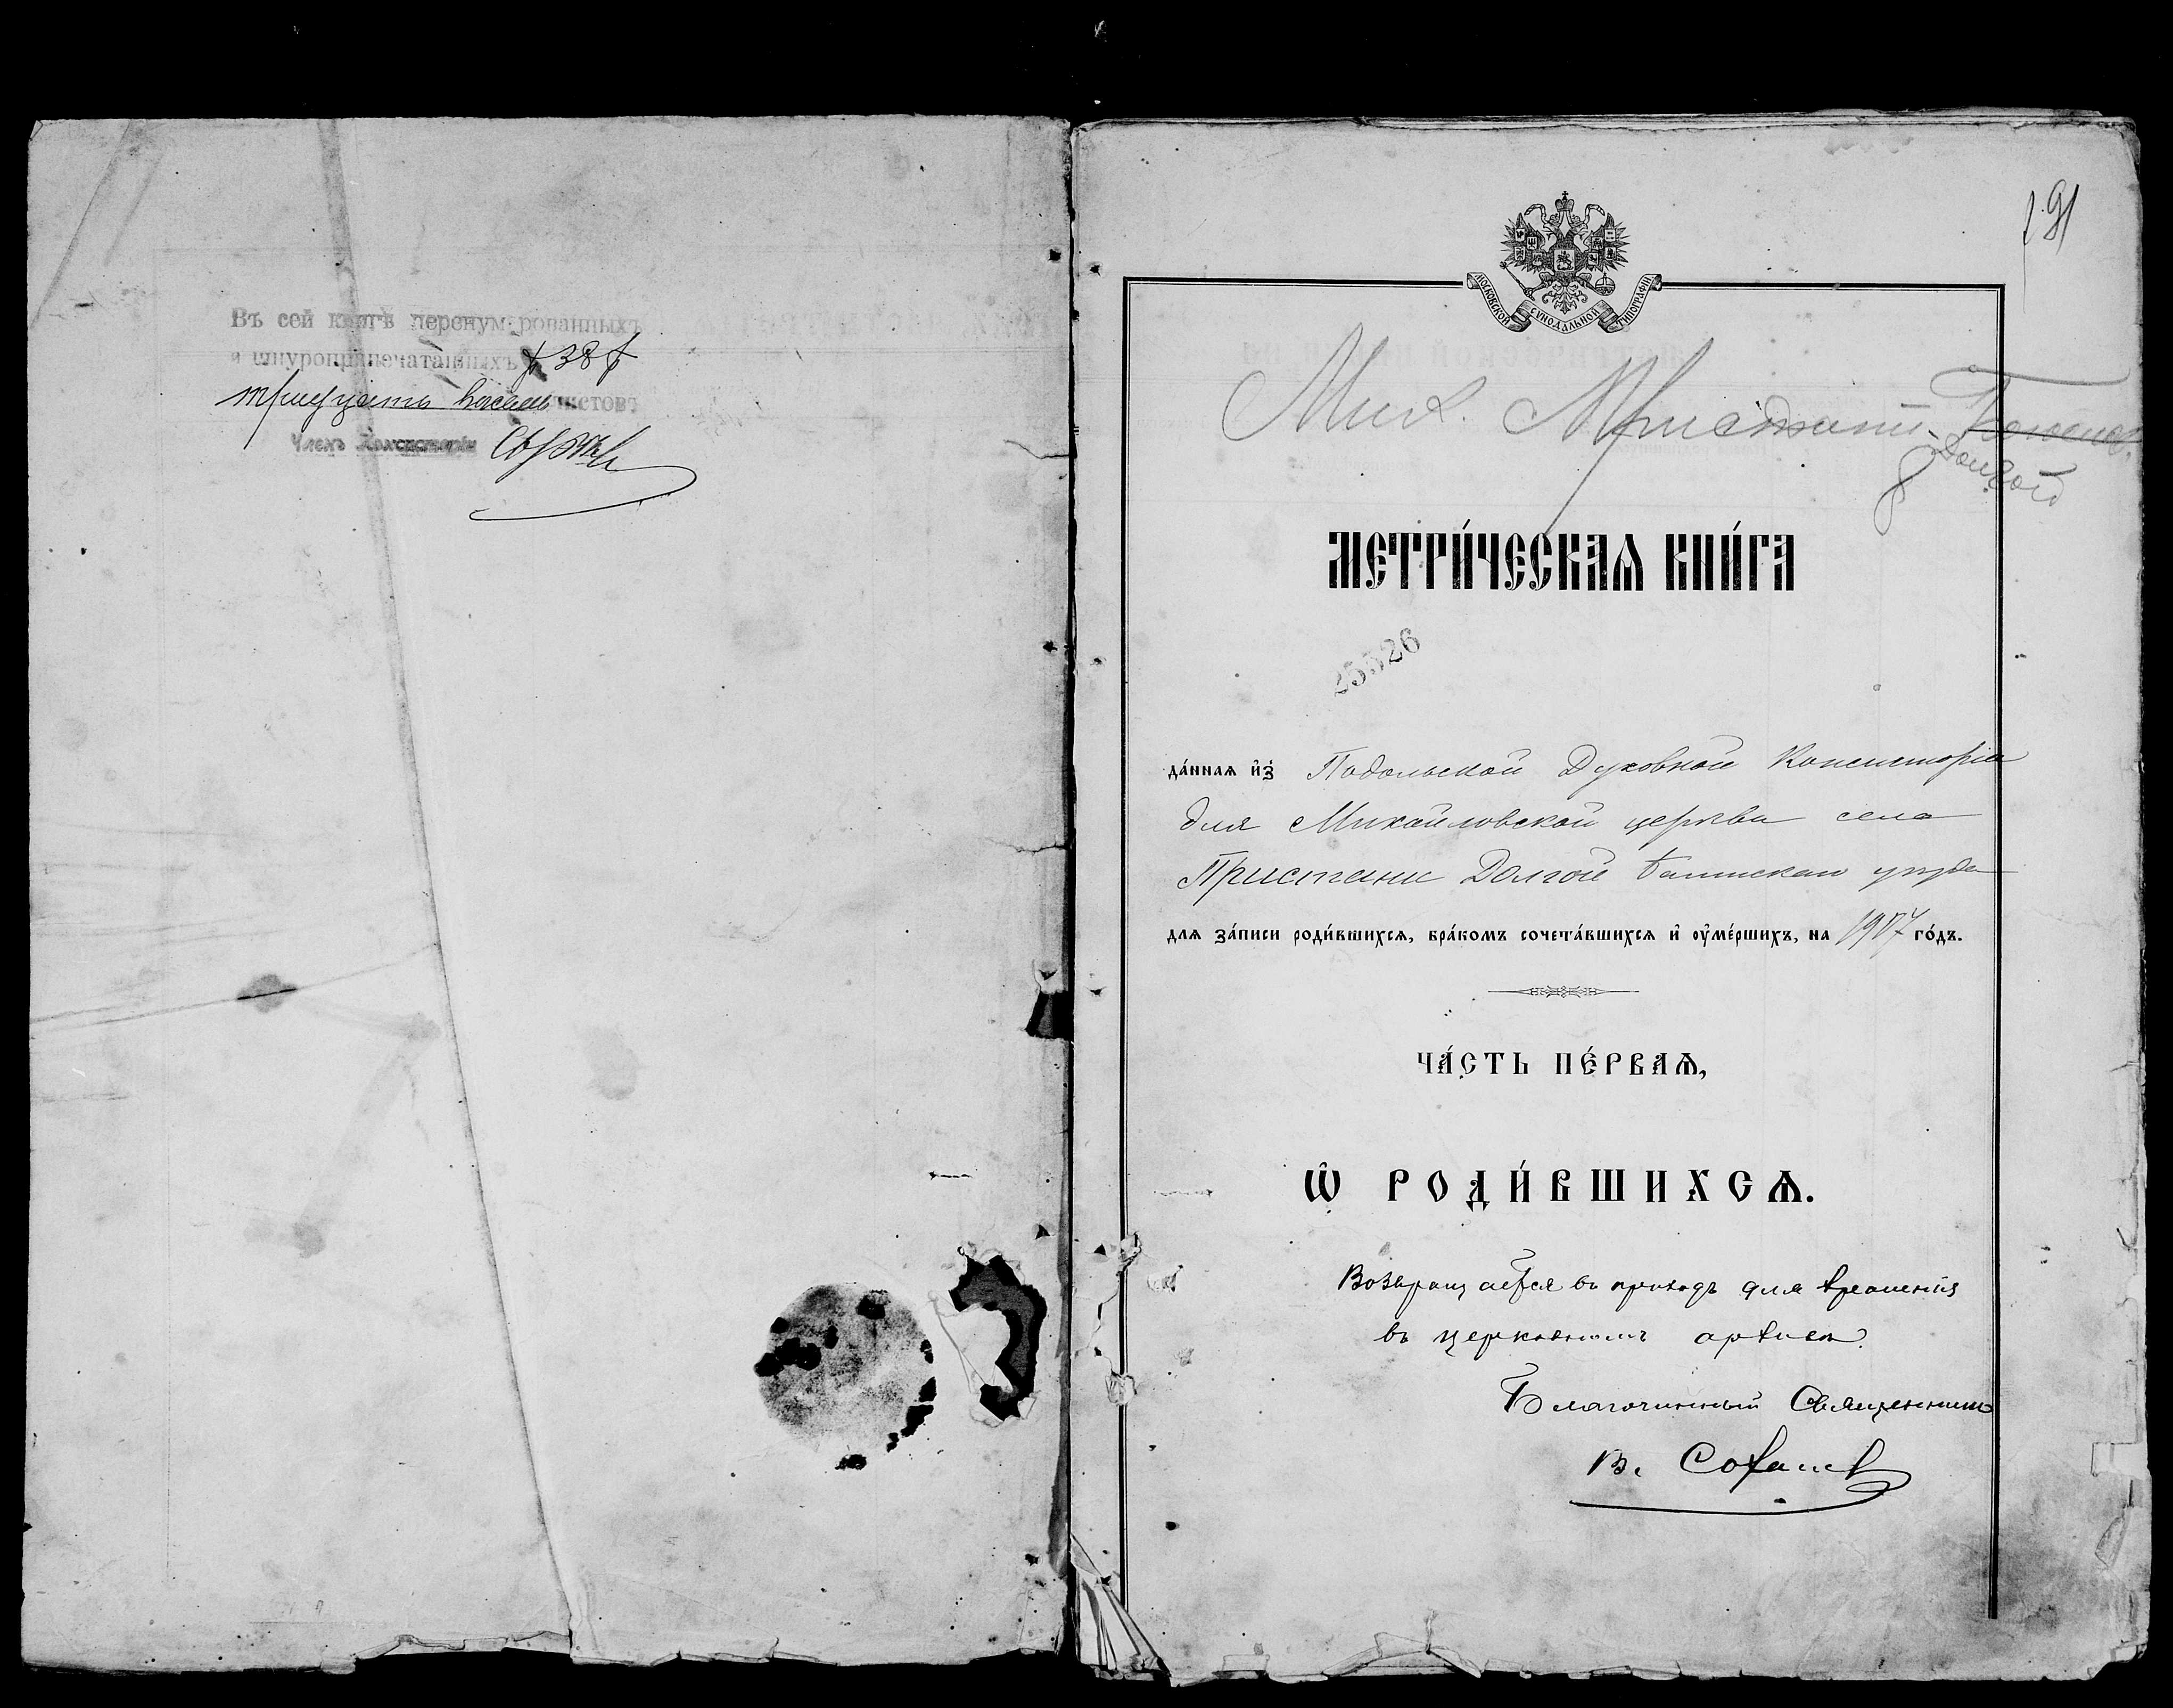 Въ сей книгѣ перенумерованныхъ
и шнуроприпечатанныхъ 38
тридцать восемь листовъ
Членъ Консисторіи
191
МОСКОВСКОЙ СѴНОДАЛЬНОЙ ТИПОГРАФІИ
Мих. Пристань
Долгой
МЕТРИ́ЧЕСКАѦ КНИ́ГА
25526
да́ннаѧ и҆з̾ Подольской Духовной Консисторіи
для Михайловской церкви села
Пристани Долгой Балтскаго уѣзда
для за́писи роди́вшихсѧ, бра́комъ сочета́вшихсѧ и҆ оу҆ме́ршихъ, на 1917 го́дъ.
ЧА́СТЬ ПЕ́РВАѦ,
Ѽ РОДИ́ВШИХСѦ.
Возвращается въ приходъ для храненія
въ церковномъ архивѣ.
Благочинный Священникъ
В.